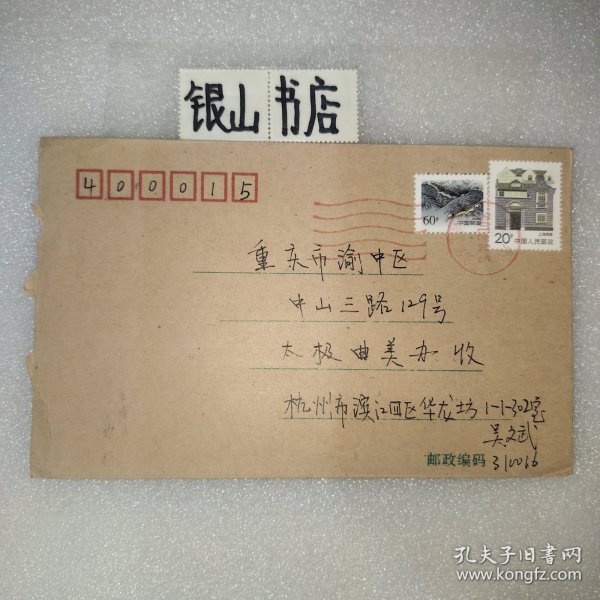 银山 书店
400015
60分
中国邮政
20分
上海民居
中国人民邮政
重庆市渝中区
中山三路129号
太极曲美办 收
杭州市滨江四区华龙坊1-1-302室
吴文武
邮政编码 310016
孔夫子旧书网
www.kongfz.com